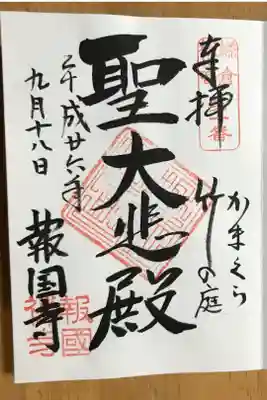 奉拝
かまくら
竹の庭
聖大悲殿
平成廿六年
九月十八日
報国寺
報國